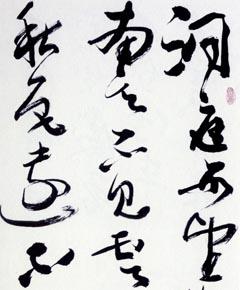 洞庭西望
南天不见云
秋色远不